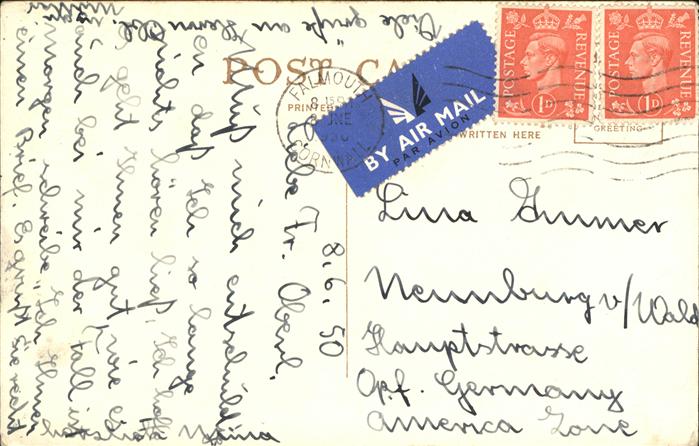 POST CA
PRINTED
WRITTEN HERE
GREETING
POSTAGE REVENUE
1D
POSTAGE REVENUE
1D
FALMOUTH
8 JNE
CORNWALL
BY AIR MAIL
PAR AVION
8.6.50
Liebe Fr. Oberl.
Muß mich entschuldi
en daß Ich so lange
nichts hören ließ, Ich hoffe
es geht Ihnen gut, wie es
auch bei mir der Fall ist.
Morgen schreibe Ich Ihnen
einen Brief. Es grüßt Sie recht
Viele Grüße an Herrn Obl.
Lina
Neunburg v/Wald
Hauptstrasse
Opf. Germany
America Zone